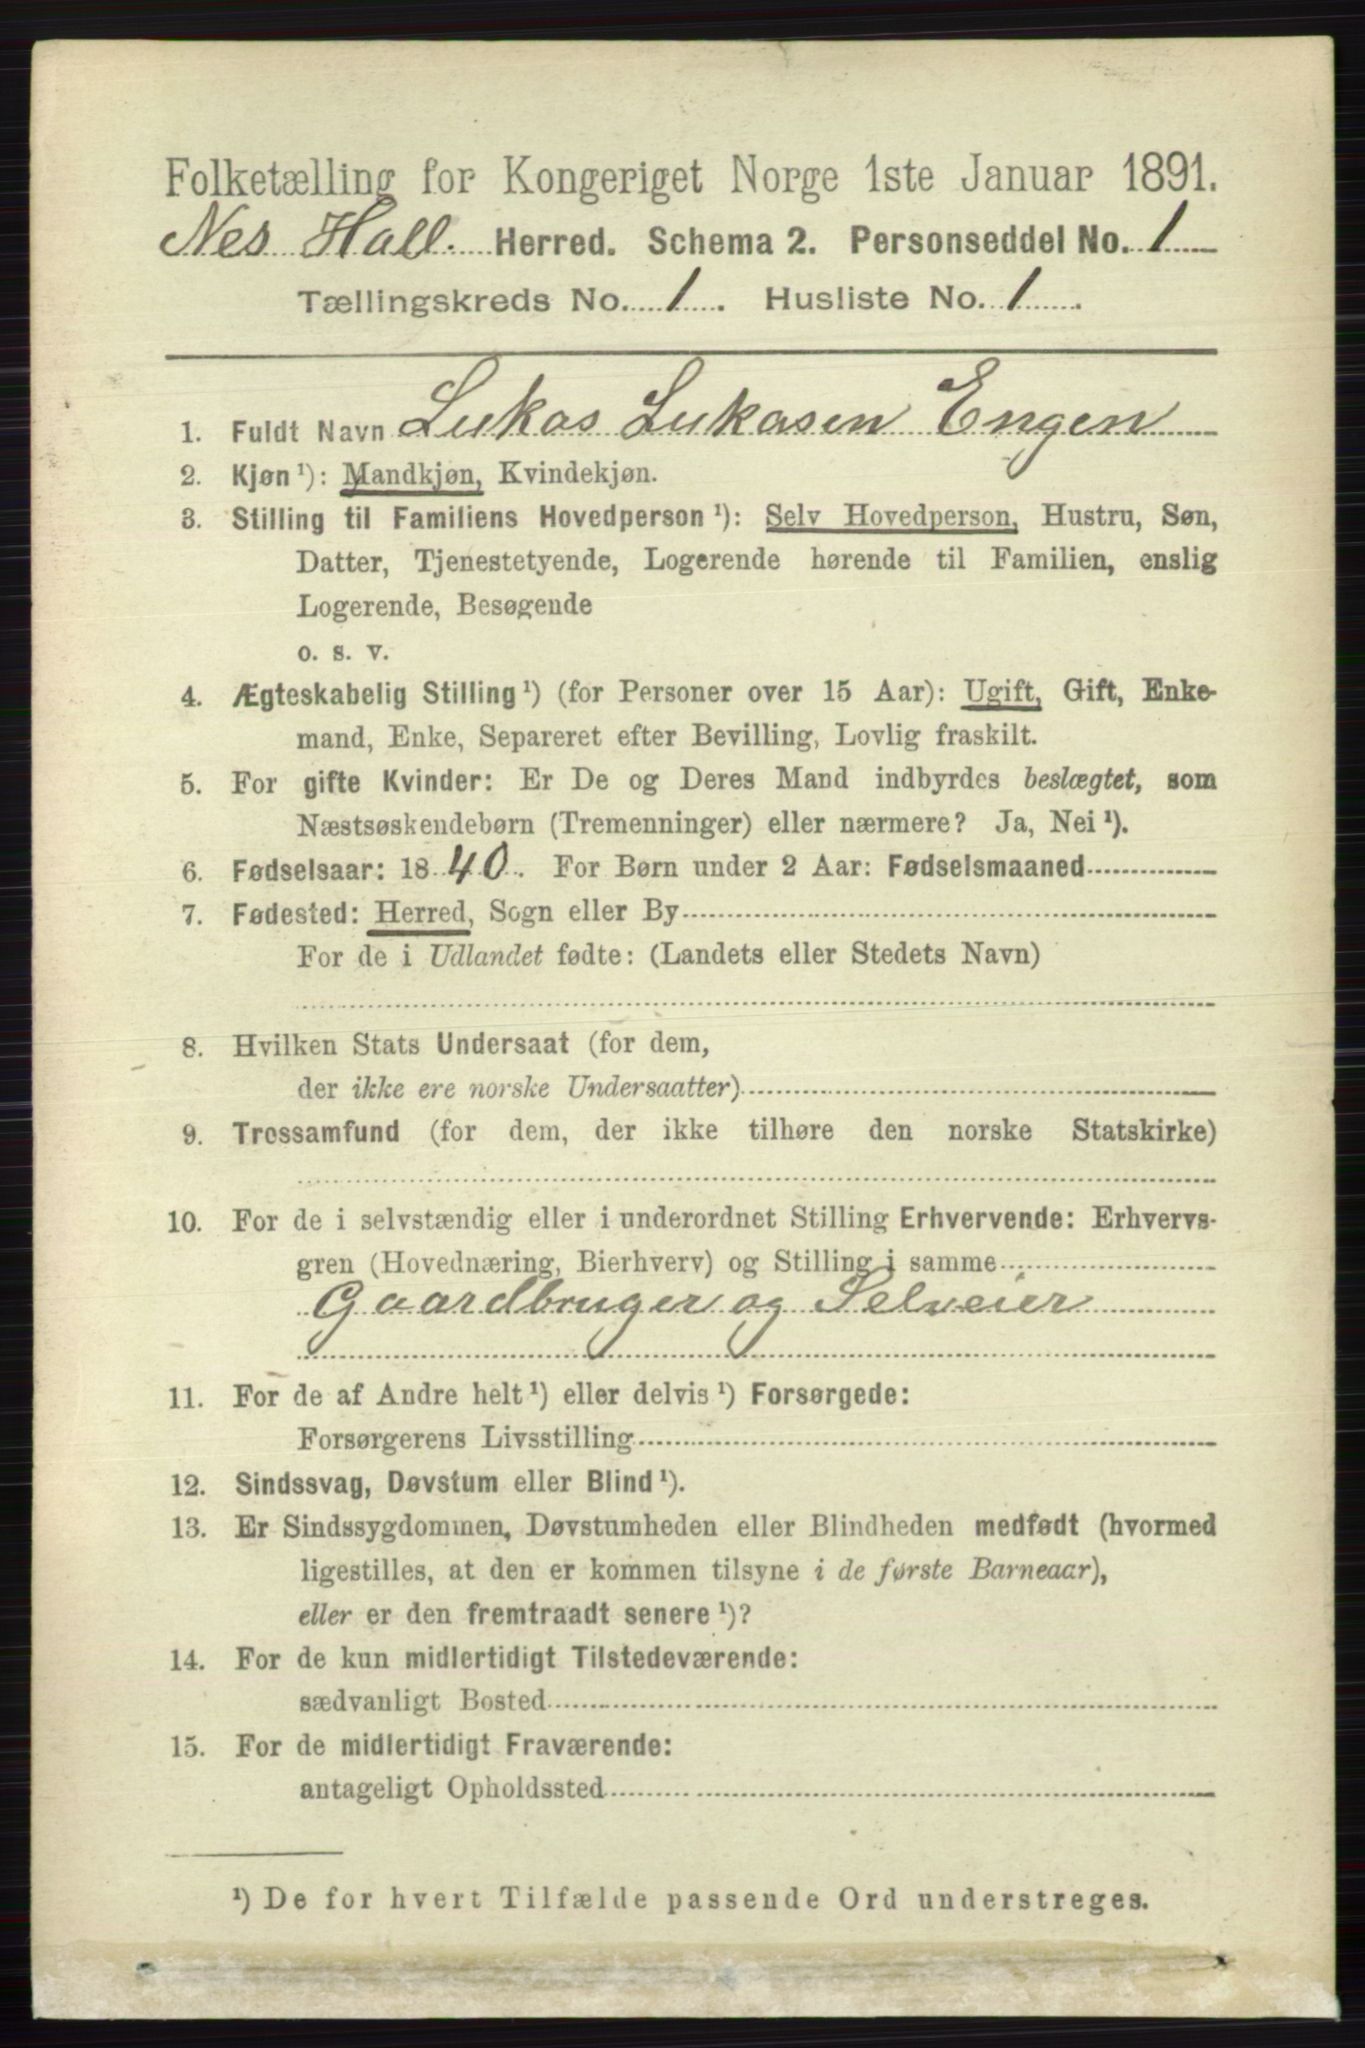 Folketælling for Kongeriget Norge 1ste Januar 1891.
Nes Hall. Herred. Schema 2. Personseddel No. 1
Tællingskreds No. 1. Husliste No. 1.
1. Fuldt Navn Lukas Lukasen Engen
2. Kjøn¹): Mandkjøn, Kvindekjøn.
3. Stilling til Familiens Hovedperson¹): Selv Hovedperson, Hustru, Søn,
Datter, Tjenestetyende, Logerende hørende til Familien, enslig
Logerende, Besøgende
o. s. v.
4. Ægteskabelig Stilling¹) (for Personer over 15 Aar): Ugift, Gift, Enke-
mand, Enke, Separeret efter Bevilling, Lovlig fraskilt.
5. For gifte Kvinder: Er De og Deres Mand indbyrdes beslægtet, som
Næstsøskendebørn (Tremenninger) eller nærmere? Ja, Nei¹).
6. Fødselsaar: 1840. For Børn under 2 Aar: Fødselsmaaned
7. Fødested: Herred, Sogn eller By
For de i Udlandet fødte: (Landets eller Stedets Navn)
8. Hvilken Stats Undersaat (for dem,
der ikke ere norske Undersaatter)
9. Trossamfund (for dem, der ikke tilhøre den norske Statskirke)
10. For de i selvstændig eller i underordnet Stilling Erhvervende: Erhvervs-
gren (Hovednæring, Bierhverv) og Stilling i samme
Gaardbruger og Selveier
11. For de af Andre helt¹) eller delvis¹) Forsørgede:
Forsørgerens Livsstilling
12. Sindssvag, Døvstum eller Blind¹).
13. Er Sindssygdommen, Døvstumheden eller Blindheden medfødt (hvormed
ligestilles, at den er kommen tilsyne i de første Barneaar),
eller er den fremtraadt senere¹)?
14. For de kun midlertidigt Tilstedeværende:
sædvanligt Bosted
15. For de midlertidigt Fraværende:
antageligt Opholdssted
¹) De for hvert Tilfælde passende Ord understreges.